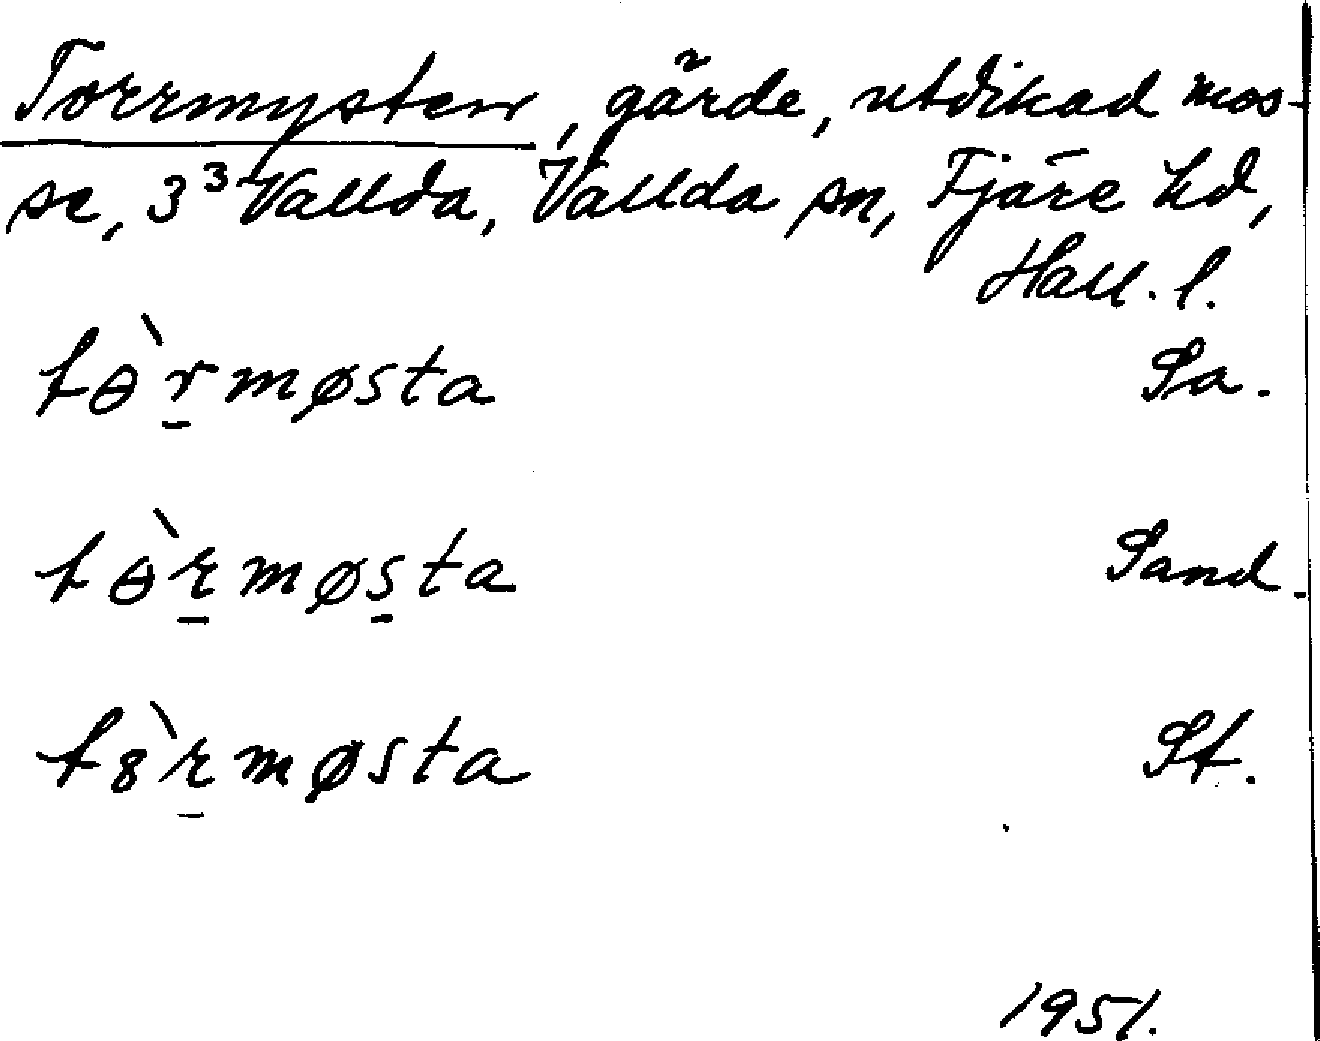 Torrmysten, gärde, utdikad mos-
se, 3³ Vallda, Vallda sn, Fjäre hd,
Hall. l.
tɵ̀r̲møsta Sa.
tɵ̀r̲møs̲ta Sand.
t8̀r̲møsta St.
1951.